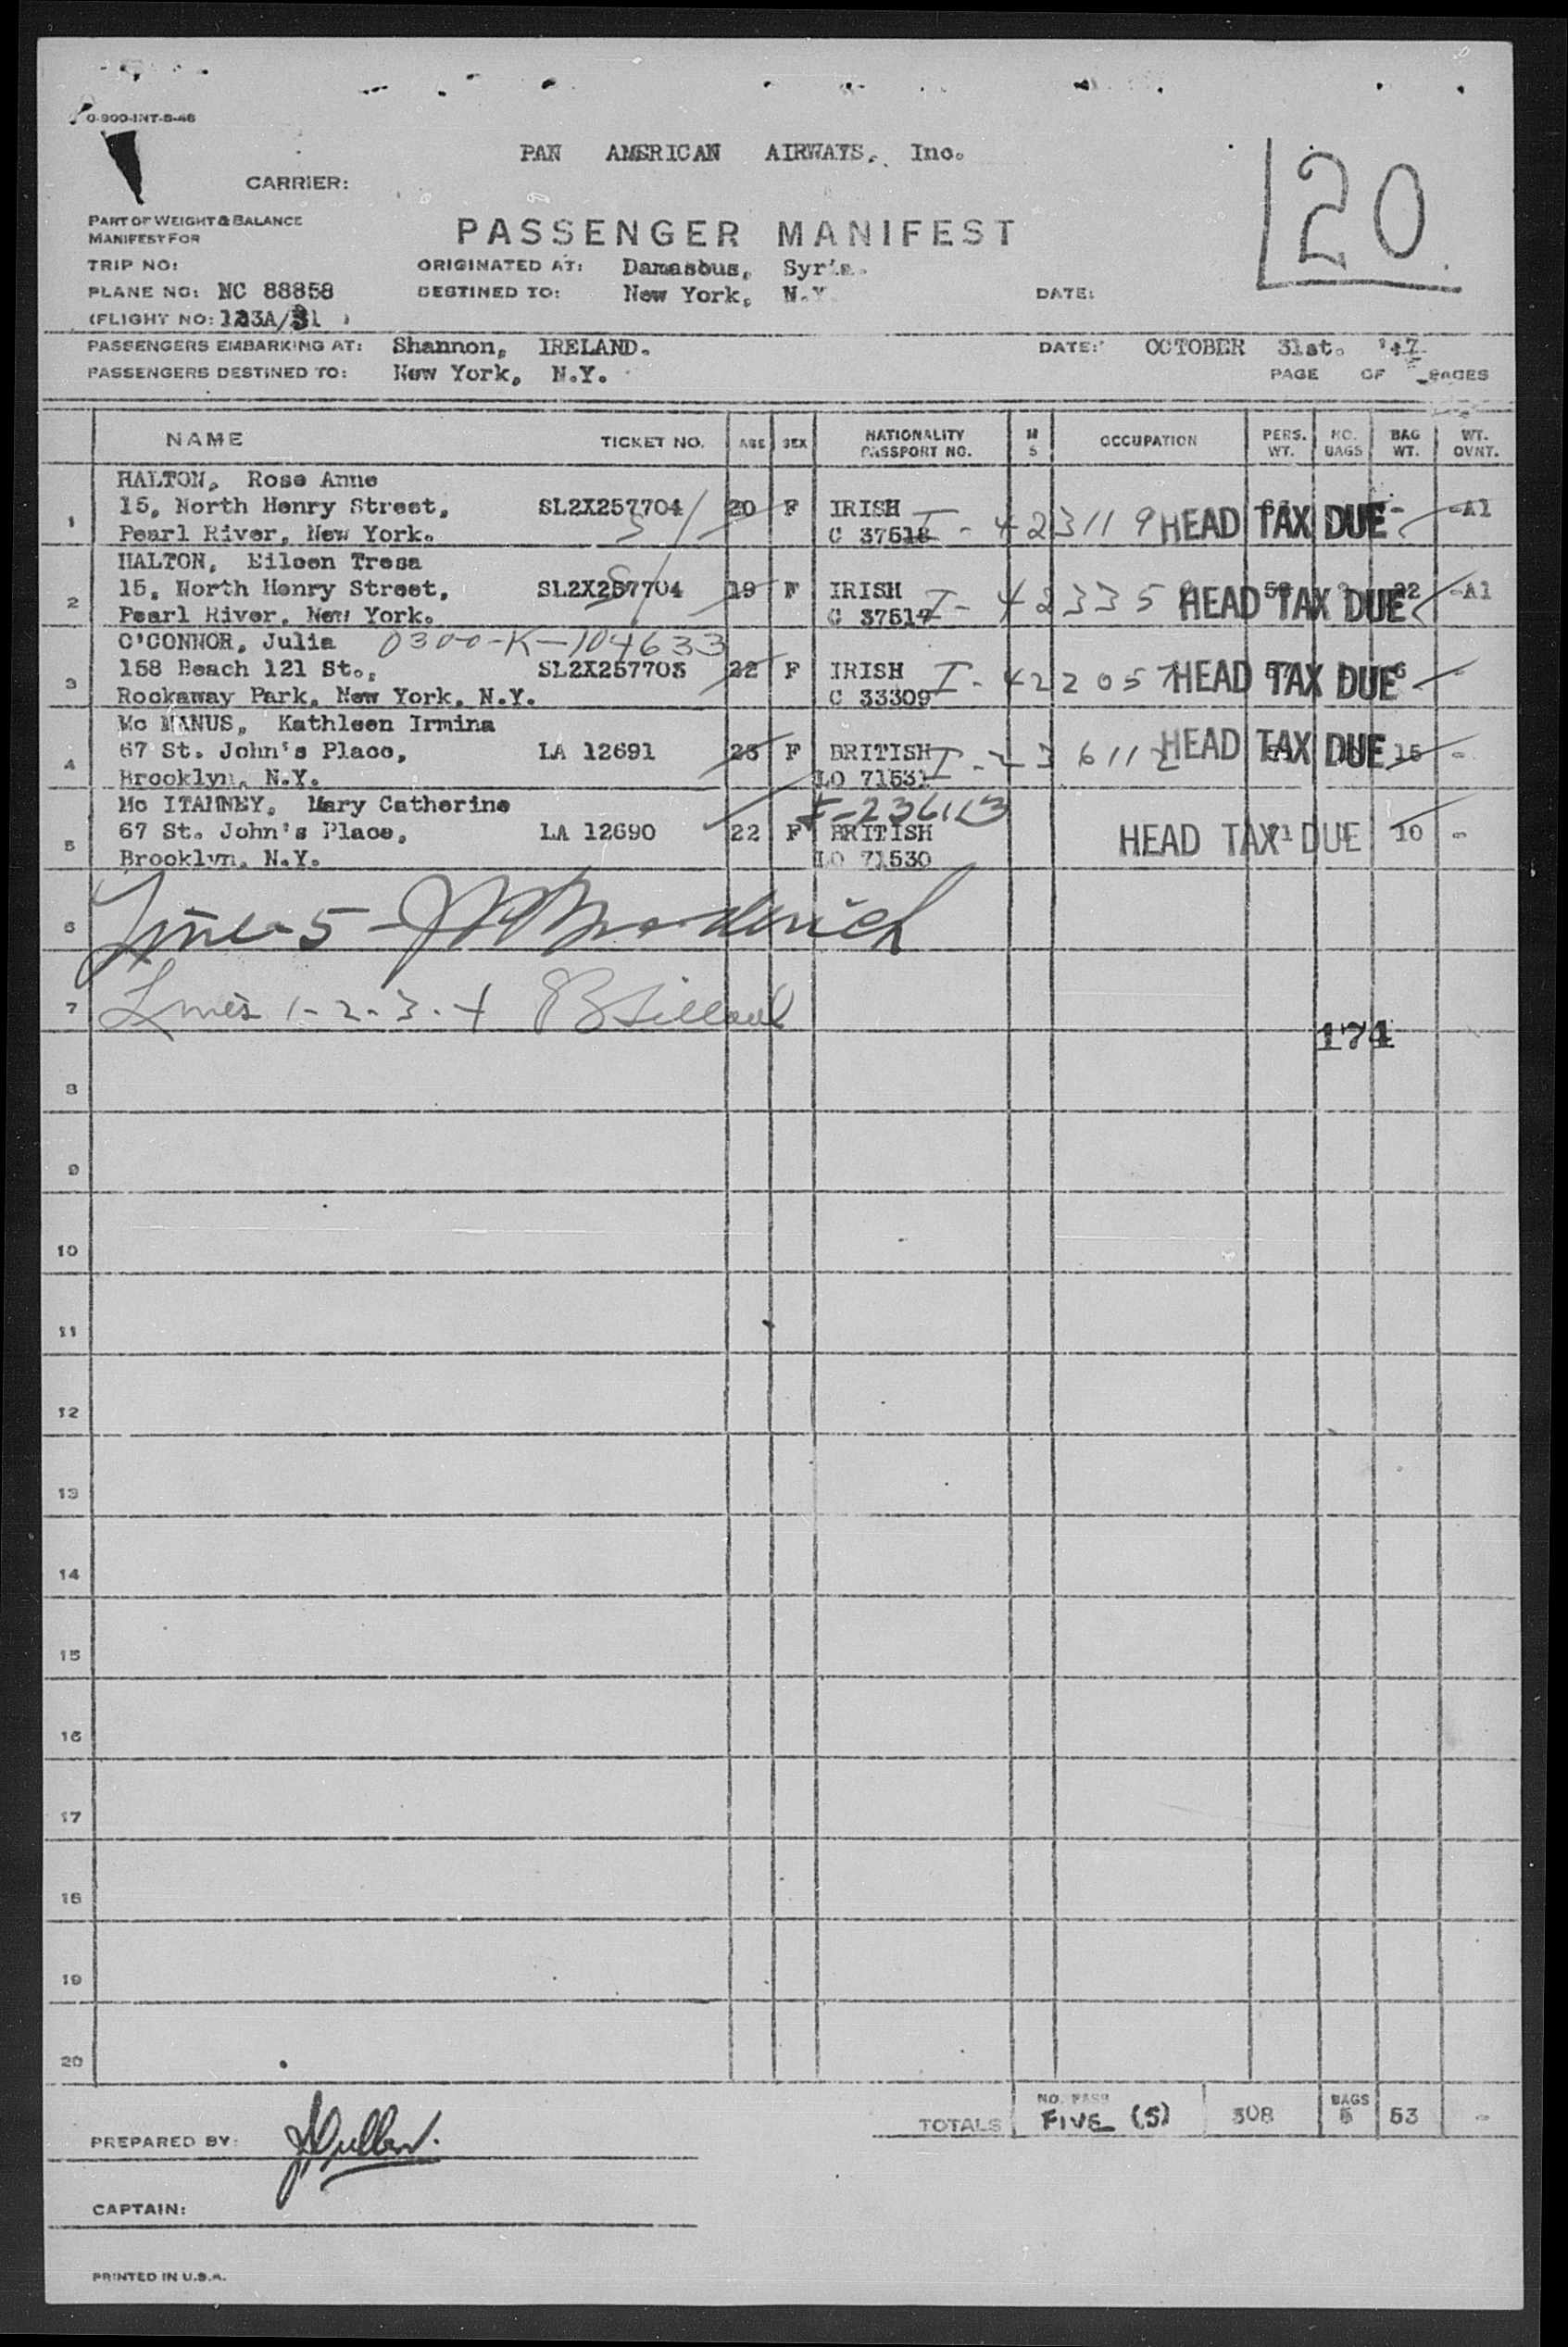 0-900-INT-8-46
PAN AMERICAN AIRWAYS, Inc.
CARRIER:
20
PART OF WEIGHT & BALANCE
MANIFEST FOR
PASSENGER MANIFEST
TRIP NO:
ORIGINATED AT: Damasbus, Syria.
PLANE NO: NC 88858
DESTINED TO: New York, N.Y.
DATE:
(FLIGHT NO: 123A/31 )
PASSENGERS EMBARKING AT: Shannon, IRELAND.
DATE: OCTOBER 31st. '47.
PASSENGERS DESTINED TO: New York, N.Y.
PAGE OF PAGES
NAME TICKET NO. AGE SEX NATIONALITY PASSPORT NO. M S OCCUPATION PERS. WT. NO. BAGS BAG WT. WT. OVNT.
HALTON, Rose Anne
1 15, North Henry Street, SL2X257704 20 F IRISH I-423119 HEAD TAX DUE -A1
Pearl River, New York. C 37518
HALTON, Eileen Tresa
2 15, North Henry Street, SL2X257704 19 F IRISH I-42335 HEAD TAX DUE 22 -A1
Pearl River, New York. C 37517
O'CONNOR, Julia 0300-K-104633
3 158 Beach 121 St., SL2X257705 22 F IRISH I-422057 HEAD TAX DUE -
Rockaway Park, New York, N.Y. C 33309
Mc MANUS, Kathleen Irmina
4 67 St. John's Place, LA 12691 25 F BRITISH I-236112 HEAD TAX DUE 15 -
Brooklyn, N.Y. LO 71531
Mc ITAMNEY, Mary Catherine I-236113
5 67 St. John's Place, LA 12690 22 F BRITISH HEAD TAX DUE 10 -
Brooklyn, N.Y. LO 71530
6 Line 5 - Broderick
7 Lines 1-2-3-4
174
8
9
10
11
12
13
14
15
16
17
18
19
20
TOTALS NO. PASS FIVE (5) 308 BAGS 5 53 -
PREPARED BY:
CAPTAIN:
PRINTED IN U.S.A.